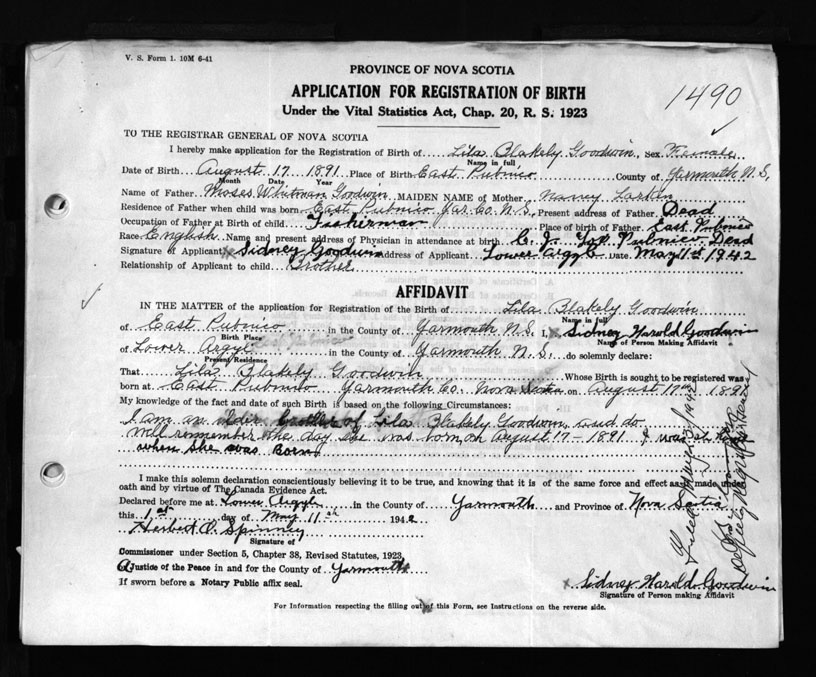 V. S. Form 1. 10M 6-41
PROVINCE OF NOVA SCOTIA
1490
APPLICATION FOR REGISTRATION OF BIRTH
Under the Vital Statistics Act, Chap. 20, R. S. 1923
TO THE REGISTRAR GENERAL OF NOVA SCOTIA
I hereby make application for the Registration of Birth of Lila Blakely Goodwin Sex Female
Name in full
Date of Birth August 17 1891 Place of Birth East Pubnico County of Yarmouth N.S.
Month Date Year
Name of Father Moses Whitman Goodwin MAIDEN NAME of Mother Nancy Larkin
Residence of Father when child was born East Pubnico Yar. Co. N.S. Present address of Father Dead
Occupation of Father at Birth of child Fisherman Place of birth of Father East Pubnico
Race English Name and present address of Physician in attendance at birth C. J. Fox Pubnico Dead
Signature of Applicant x Sidney Goodwin Address of Applicant Lower Argyle Date May 1st 1942
Relationship of Applicant to child Brother
AFFIDAVIT
IN THE MATTER of the application for Registration of the Birth of Lila Blakely Goodwin
Name in full
of East Pubnico in the County of Yarmouth N.S. I, x Sidney Harold Goodwin
Birth Place Name of Person Making Affidavit
of Lower Argyle in the County of Yarmouth N.S. do solemnly declare:
Present Residence
That Lila Blakely Goodwin Whose Birth is sought to be registered was
born at East Pubnico Yarmouth Co. Nova Scotia on August 17th 1891
My knowledge of the fact and date of Birth is based on the following Circumstances:
I am an older brother of Lila Blakely Goodwin and do
well remember the day she was born on August 17 - 1891 I was at home
when she was Born
I make this solemn declaration conscientiously believing it to be true, and knowing that it is of the same force and effect as if made under
oath and by virtue of The Canada Evidence Act.
Declared before me at Lower Argyle in the County of Yarmouth and Province of Nova Scotia
this 1st day of May 11th 1942
Herbert V. Spinney
Signature of
Commissioner under Section 5, Chapter 38, Revised Statutes, 1923
A Justice of the Peace in and for the County of Yarmouth
If sworn before a Notary Public affix seal.
x Sidney Harold Goodwin
Signature of Person making Affidavit
For Information respecting the filling out of this Form, see Instructions on the reverse side.